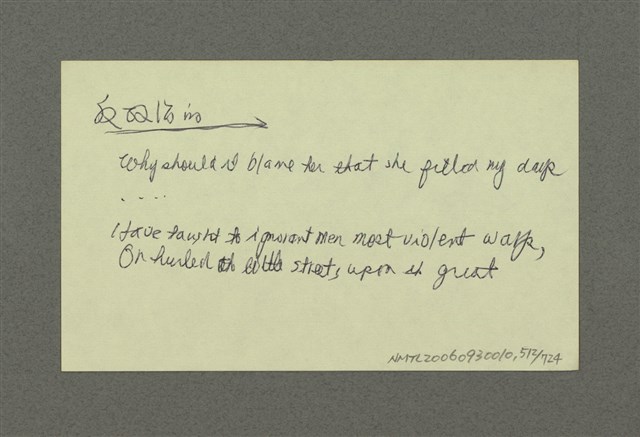 反政治 in
Why should I blame her that she filled my days
....
Have taught to ignorant men most violent ways,
Or hurled the little streets upon the great
NMTL20060930010,572/724